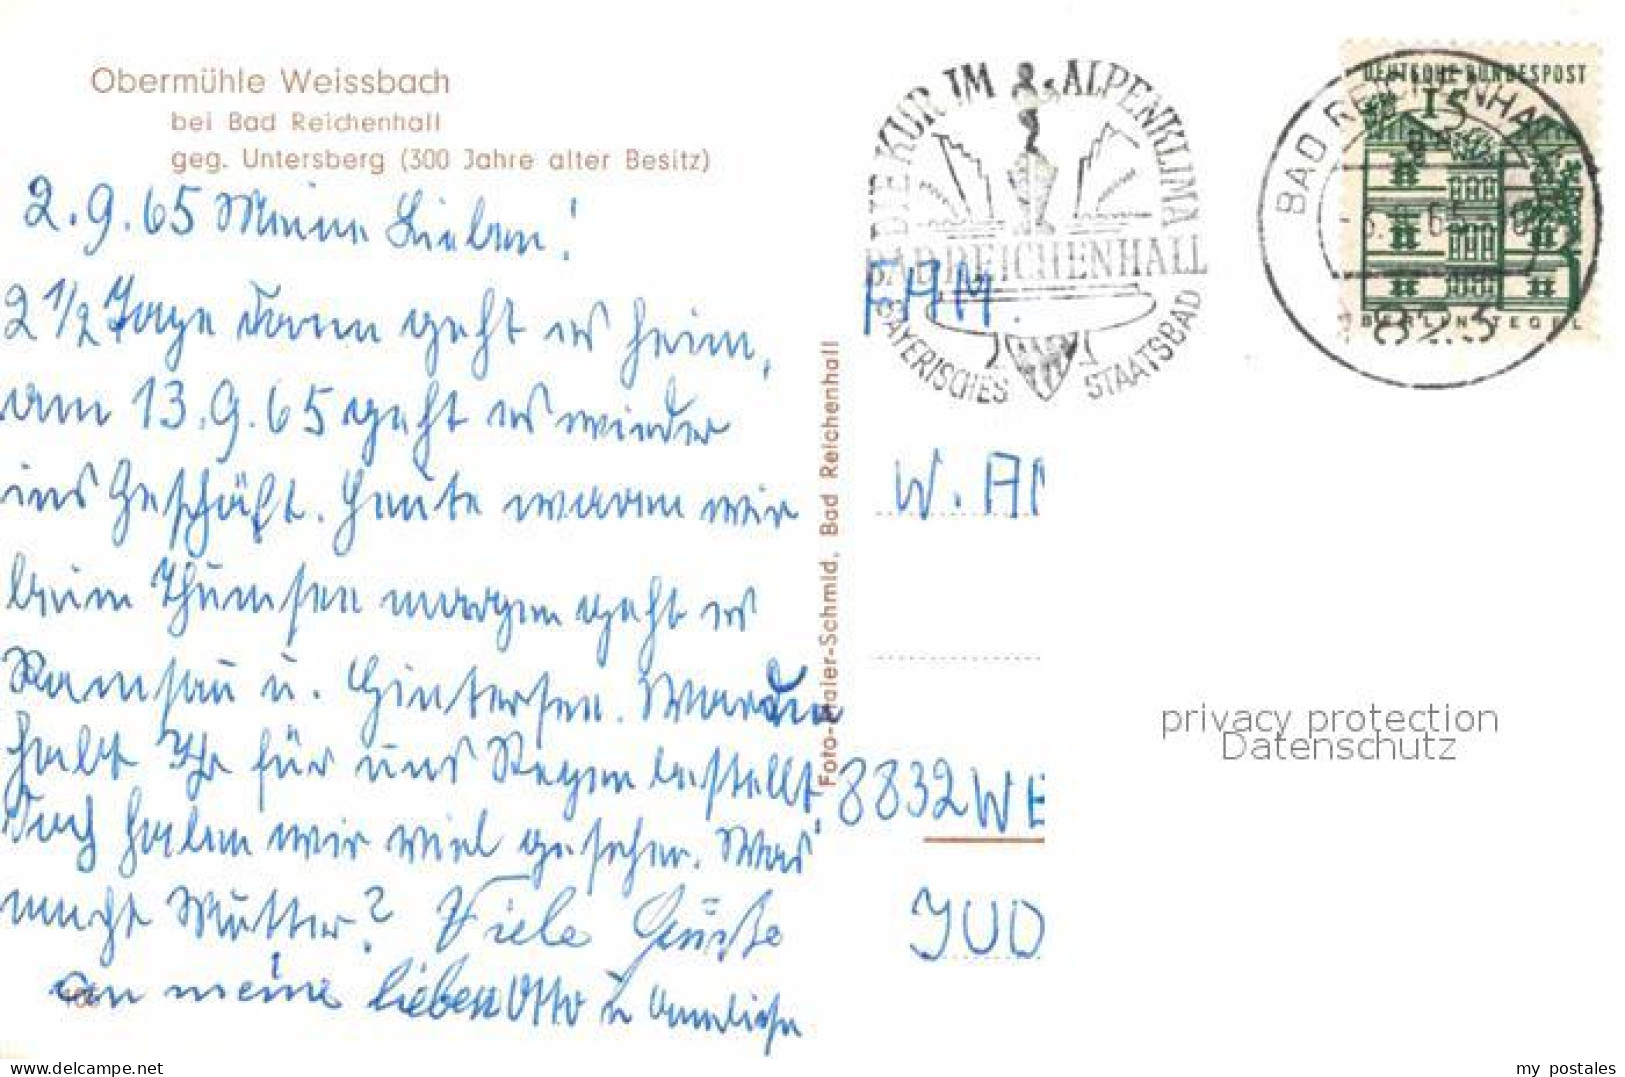 Obermühle Weissbach
bei Bad Reichenhall
geg. Untersberg (300 Jahre alter Besitz)
2.9.65 Meine Lieben!
2 1/2 Tage dann geht es heim,
am 13.9.65 geht es wieder
ins Geschäft. Heute waren wir
beim Thumsee morgen geht es
Ramsau u. Hintersee. Warum
habt Ihr für uns Regen bestellt,
doch haben wir viel gesehen. Was
macht Mutter? Viele Grüße
an meine lieben Otto u
Foto-Maier-Schmid, Bad Reichenhall
DIE KUR IM ALPENKLIMA
BAD REICHENHALL
BAYERISCHES STAATSBAD
DEUTSCHE BUNDESPOST
15
BERLIN TEGEL
BAD REICHENHALL
FAM.
W. AN
8832 WE
JUD
privacy protection
Datenschutz
www.delcampe.net
my_postales